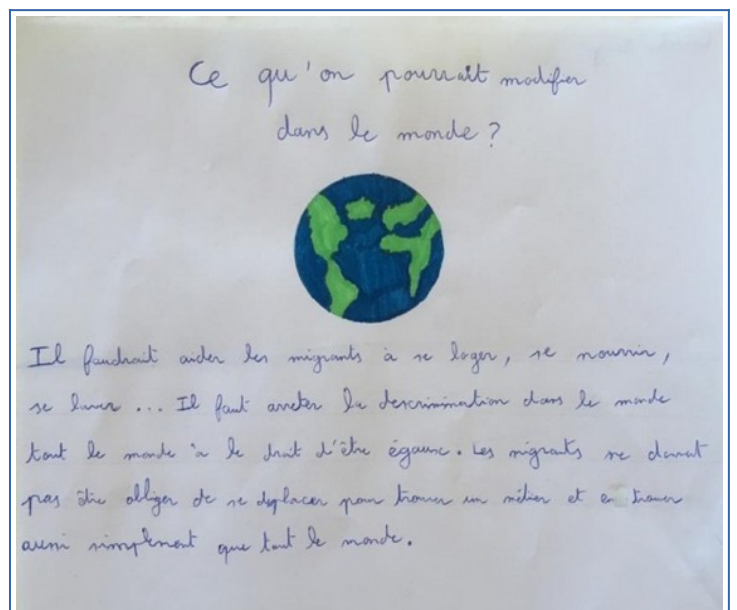 Ce qu'on pourrait modifier
dans le monde ?
Il faudrait aider les migrants à se loger, se nourrir,
se laver ... Il faut arreter la descrimination dans le monde
tout le monde à le droit d'être égaux. Les migrants ne devrait
pas être obliger de se deplacer pour trouver un métier et en trouver
aussi simplement que tout le monde.